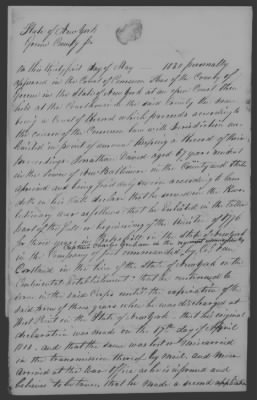 State of New York
Greene County ss
On this thirty first day of May 1820 personally
appeared in the Court of Common Pleas of the County of
Greene in the State of New York at an open Court then
held at the Courthouse in the said County the same
being a Court of Record which proceeds according to
the course of the Common law with Jurisdiction un-
limited in point of amount keeping a Record of their
proceedings Jonathan aged 67 years resident
in the Town of New Baltimore in the County and State
aforesaid and being first duly sworn according to law
doth on his oath declare that he served in the Revo-
lutionary war as follows that he Enlisted in the latter
part of the fall or beginning of the Winter of 1776
for three years in in the State of New York
in the Company of commanded by Col.
Cortland in the line of the State of New York on the
Continental Establishment that he continued to
serve in the said Corps until the expiration of the
said term of three years when he was discharged at
West Point in the State of New York that his original
declaration was made on the 17th day of April
and that the same was lost or miscarried
in the transmission thereof by mail and never
arrived at the War Office as he is informed and
believes to be true, that he made a second application